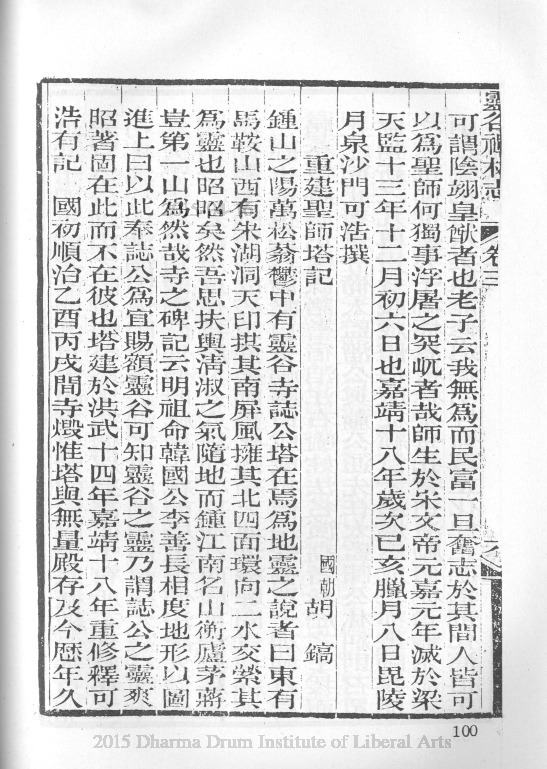 靈谷禪林志 卷三
可謂陰翊皇猷者也老子云我無為而民富一旦奮志於其間人皆可
以為聖師何獨事浮屠之突屼者哉師生於宋文帝元嘉元年滅於梁
天監十三年十二月初六日也嘉靖十八年歲次己亥臘月八日毘陵
月泉沙門可浩撰
重建聖師塔記
國朝胡 鎬
鍾山之陽萬松蓊鬱中有靈谷寺誌公塔在焉為地靈之說者曰東有
馬鞍山西有朱湖洞天印拱其南屏風擁其北四面環向二水交縈其
為靈也昭昭矣然吾思扶輿清淑之氣隨地而鍾江南名山衡廬茅蔣
豈第一山為然哉寺之碑記云明祖命韓國公李善長相度地形以圖
進上曰以此奉誌公為宜賜額靈谷可知靈谷之靈乃謂誌公之靈爽
昭著固在此而不在彼也塔建於洪武十四年嘉靖十八年重修釋可
浩有記 國初順治乙酉丙戌間寺燬惟塔與無量殿存及今歷年久
100
2015 Dharma Drum Institute of Liberal Arts